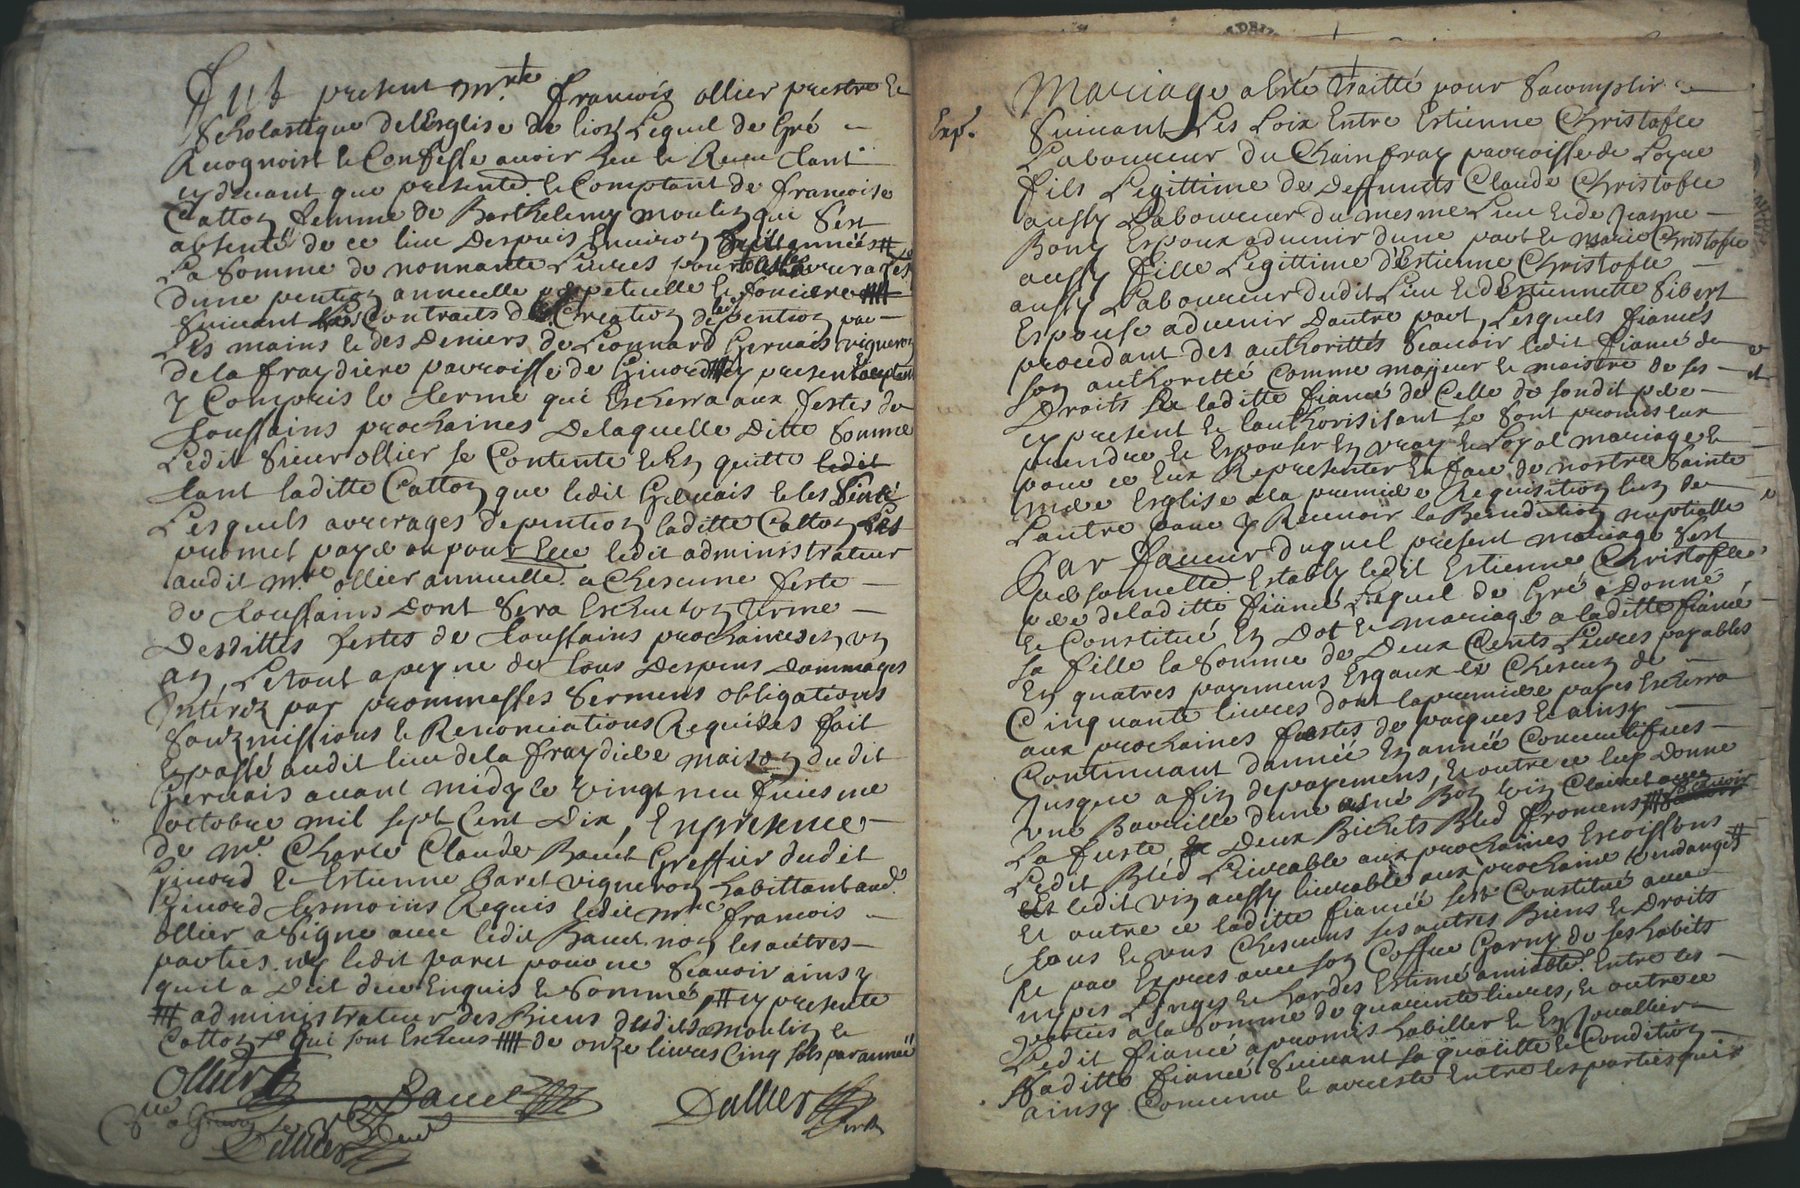 Fut present Mre francois ollier prestre Et
Scholastique de lEsglise de lion Lequel de Gré
Recognoist Et Confesse avoir heu Et Receu tant
cy devant que presentemt Et Comptant de francoise
Catton femme de Barthelemy moulin qui sest
absenté de ce lieu Despuis Environ huit années #
La somme de nonnante Livres pour les arrerages
dune pention annuelle perpetuelle Et fonciere ####
suivant les Contraits de Creation de pention par
Les mains Et des Deniers de Leonnard Gervais vigneron
de la fraydiere parroisse de Givord ### cy present acceptant
y Compris le terme qui Escherra aux festes de
toussains prochaines De laquelle Ditte somme
Ledit sieur ollier se Contente Et En quitte ledit
tant laditte Catton que ledit Gervais Et les siens
Lesquels arrerages de pention laditte Catton
promet payer ou pour Elle ledit administrateur
audit Mre ollier annuellemt a Chescune feste
de toussains Dont sera Escheu un terme
Desdittes festes de toussains prochaines en un
an, Le tout a peyne de tous Despens dommages
Interez par prommesses sermens obligations
soubzmissions Et Renonciations Requises fait
Et passé audit lieu de la fraydiere maison dudit
Gervais avant midy le vingt neufviesme
octobre mil sept Cent Dix, En presence
de Me Charle Claude Baud Greffier dudit
Givord Et Estienne Paret vigneron habittant aud.
Givord tesmoins Requis ledit Mre francois
ollier a signé avec ledit Baud non les autres
parties ny ledit paret pour ne scavoir ainsy
quil a Dit de ce Enquis Et sommé, ## cy presente
## administrateur des Biens dudit moulin Et
Catton # qui sont Escheus #### de onze livres Cinq sols par année
Ollier
Baud
Dallier
Dallier
Mariage a Esté traitté pour sacomplir
Exp.
suivant Les Loix Entre Estienne Christofle
Laboureur du Chainfray parroisse de Loyre
fils Legittime de Deffunts Claude Christofle
aussy Laboureur du mesme Lieu Et de Jeanne
Bony Espoux advenir dune part Et Marie Christofle
aussy fille Legittime dEstienne Christofle
aussy Laboureur dudit Lieu Et dEstiennette Sibert
Espouse advenir Dautre part, Lesquels fiancés
procedant des authorittés scavoir ledit fiancé de
son authoritté Comme majeur Et maistre de ses
Droits Et laditte fiancé de Celle de sondit pere
cy present Et lauthorisant se sont promis Eux
prendre Et Espouser En vray Et Loyal mariage Et
pour ce Eux Representer En face de nostre sainte
mere Esglise a la premiere Requisition lun de
Lautre pour y Recevoir la Benediction nuptialle
Par faveur duquel present mariage sest
personnellemt Estably ledit Estienne Christofle
pere de laditte fiancé Lequel de Gré a Donné
Et Constitué En Dot Et mariage a laditte fiancé
sa fille la somme de Deux Cents Livres payables
En quatres payemens Esgaux de Chescun de
Cinquante livres dont la premiere paye Escherra
aux prochaines festes de pacques Et ainsy
Continuant dannéé En année Consecutifves
Jusque a fin de payemens, Et outre ce luy Donne
une Bareille dune asnée Bon vin Clairet avec
La fuste Deux Bichets Bled froment
Ledit Bled Livrable aux prochaines moissons
Et ledit vin aussy livrable aux prochaine vendanges #
Et outre ce laditte fiancéé sest Constitué avec
tous Et uns Chescuns ses autres Biens Et Droits
Et par Expres avec son Coffre Garny de ses habits
nupes Linges Et hardes Estimé amiablemt Entre les
parties a la somme de quarente livres, Et outre ce
Ledit fiancé a promis habiller Et Enjouallier
saditte fiancé suivant sa qualitté Et Condition
ainsy Convenu Et arresté Entre les parties qui